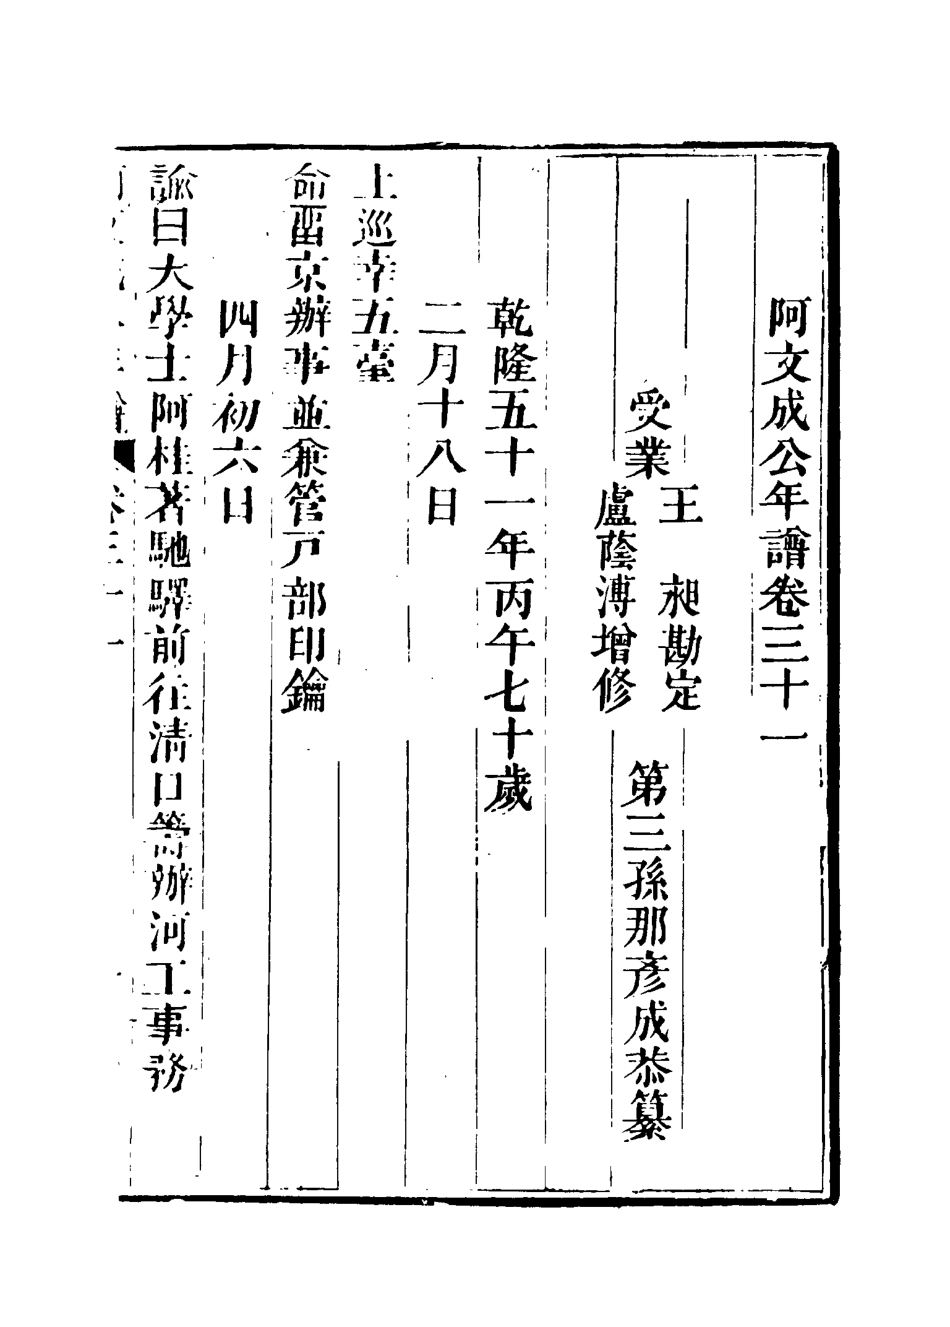 阿文成公年譜卷三十一
第三孫那彥成恭纂
受業
王昶勘定
盧蔭溥增修
乾隆五十一年丙午七十歲
二月十八日
上巡幸五臺
命畱京辦事並兼管戸部印鑰
四月初六日
諭曰大學士阿桂著馳驛前往清口籌辦河工事務